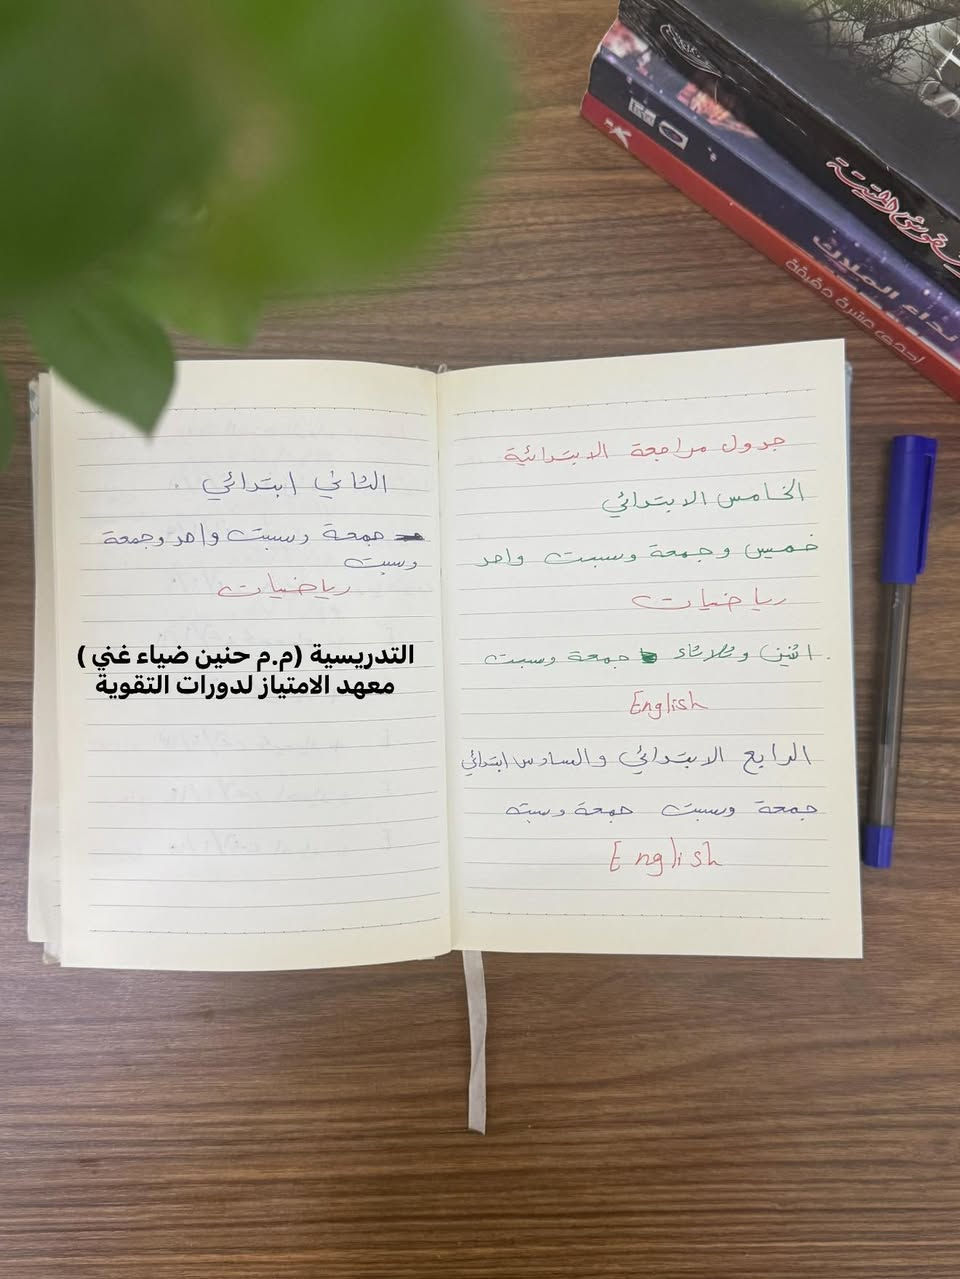 جدول مراجعة الابتدائية
الخامس الابتدائي
خميس وجمعة وسبت واحد
رياضيات
اثنين وثلاثاء جمعة وسبت
English
الرابع الابتدائي والسادس ابتدائي
جمعة وسبت جمعة وسبت
English
الثاني ابتدائي
جمعة وسبت واحد وجمعة
وسبت
رياضيات
التدريسية (م.م حنين ضياء غني )
معهد الامتياز لدورات التقوية
نداء الملاك
احدى عشرة دقيقة